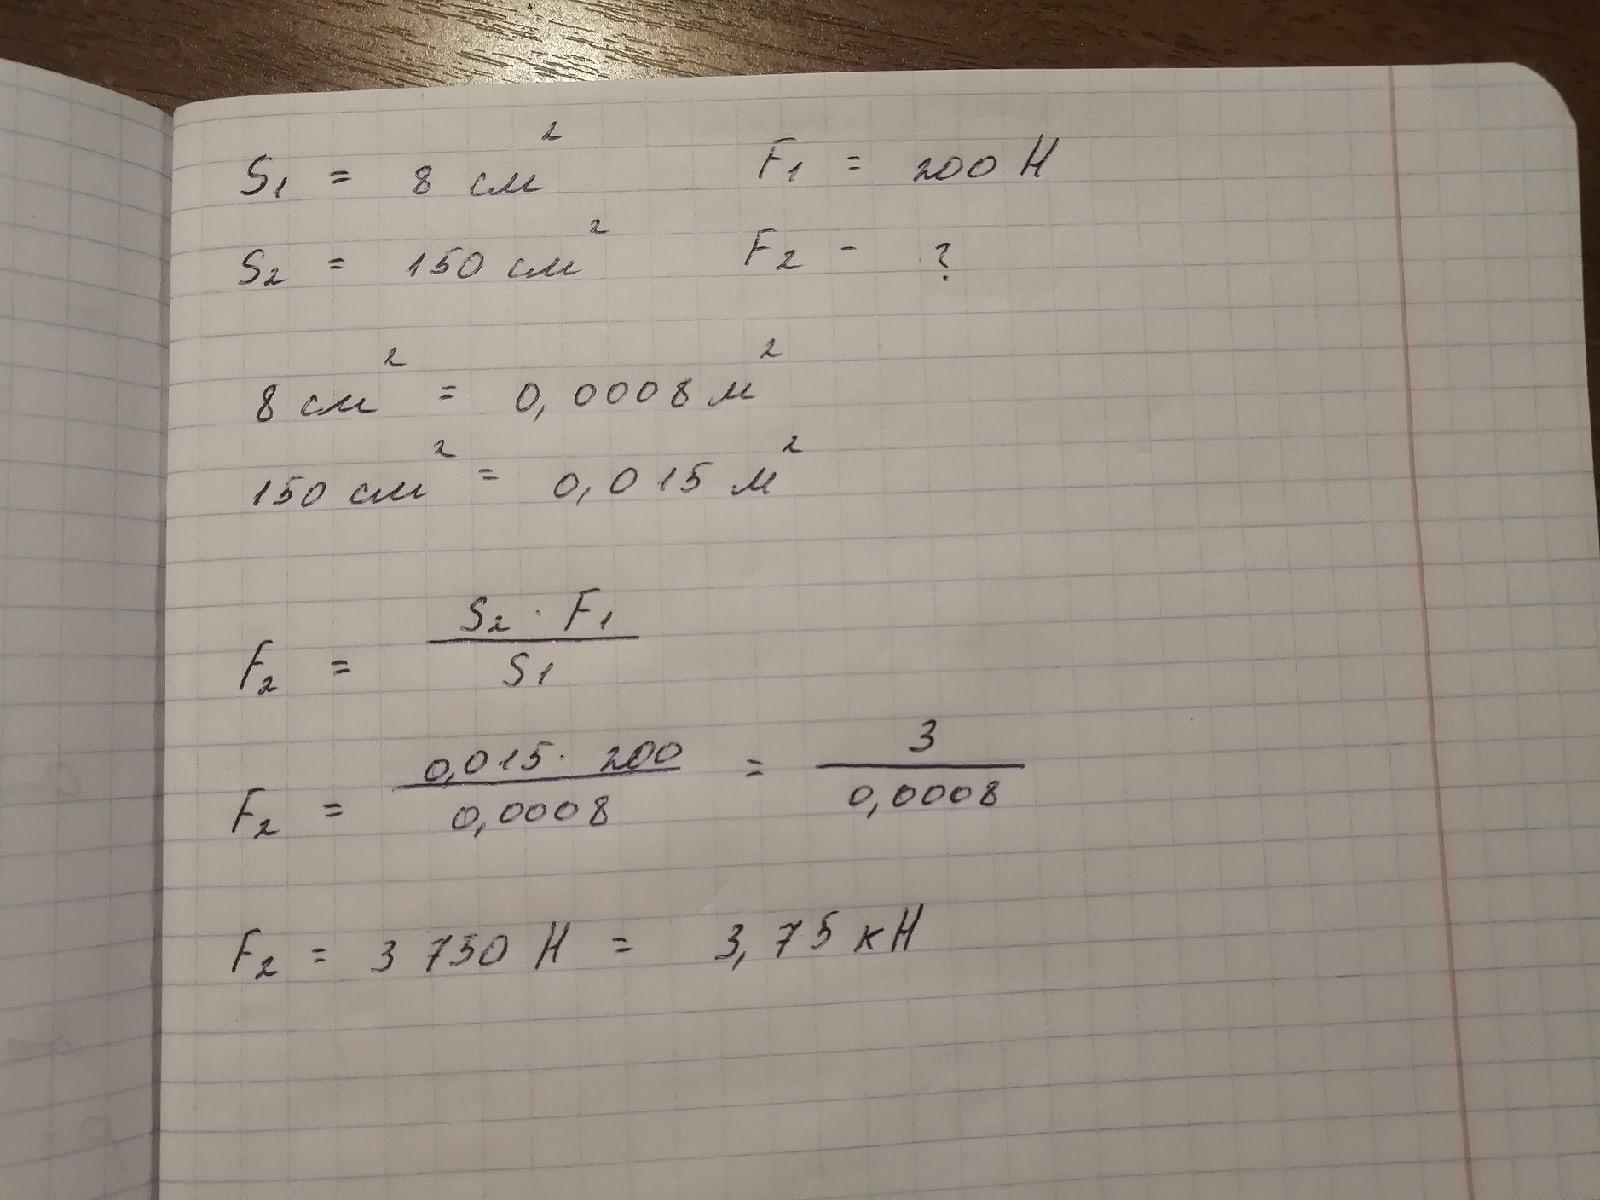 S₁ = 8 см² F₁ = 200 Н
S₂ = 150 см² F₂ - ?
8 см² = 0,0008 м²
150 см² = 0,015 м²
F₂ = S₂ · F₁ / S₁
F₂ = 0,015 · 200 / 0,0008 = 3 / 0,0008
F₂ = 3 750 Н = 3,75 кН